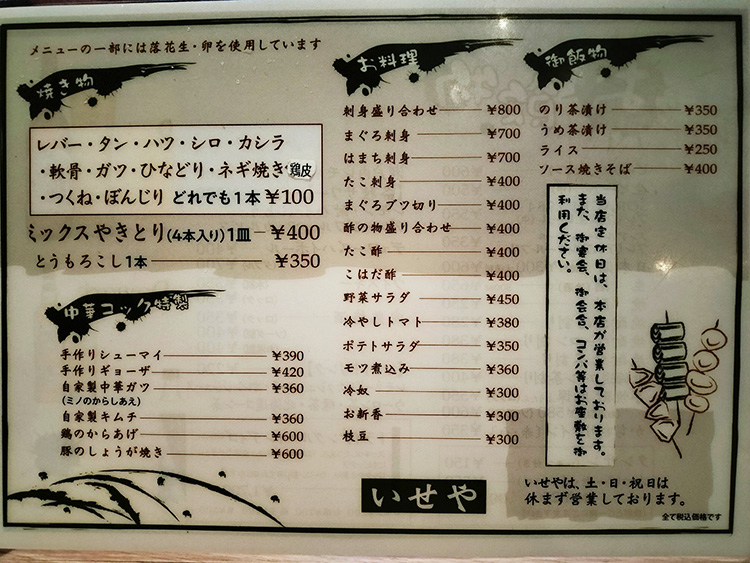 メニューの一部には落花生・卵を使用しています
焼き物
レバー・タン・ハツ・シロ・カシラ
・軟骨・ガツ・ひなどり・ネギ焼き 鶏皮
・つくね・ぼんじり どれでも1本 ¥100
ミックスやきとり(4本入り)1皿 ¥400
とうもろこし1本 ¥350
中華コック特製
手作りシューマイ ¥390
手作りギョーザ ¥420
自家製中華ガツ ¥360
(ミノのからしあえ)
自家製キムチ ¥360
鶏のからあげ ¥600
豚のしょうが焼き ¥600
お料理
刺身盛り合わせ ¥800
まぐろ刺身 ¥700
はまち刺身 ¥700
たこ刺身 ¥400
まぐろブツ切り ¥400
酢の物盛り合わせ ¥400
たこ酢 ¥400
こはだ酢 ¥400
野菜サラダ ¥450
冷やしトマト ¥380
ポテトサラダ ¥350
モツ煮込み ¥360
冷奴 ¥300
お新香 ¥300
枝豆 ¥300
いせや
御飯物
のり茶漬け ¥350
うめ茶漬け ¥350
ライス ¥250
ソース焼きそば ¥400
当店定休日は、本店が営業しております。
また、御宴会、御会合、コンパ等はお座敷を御
利用ください。
いせやは、土・日・祝日は
休まず営業しております。
全て税込価格です